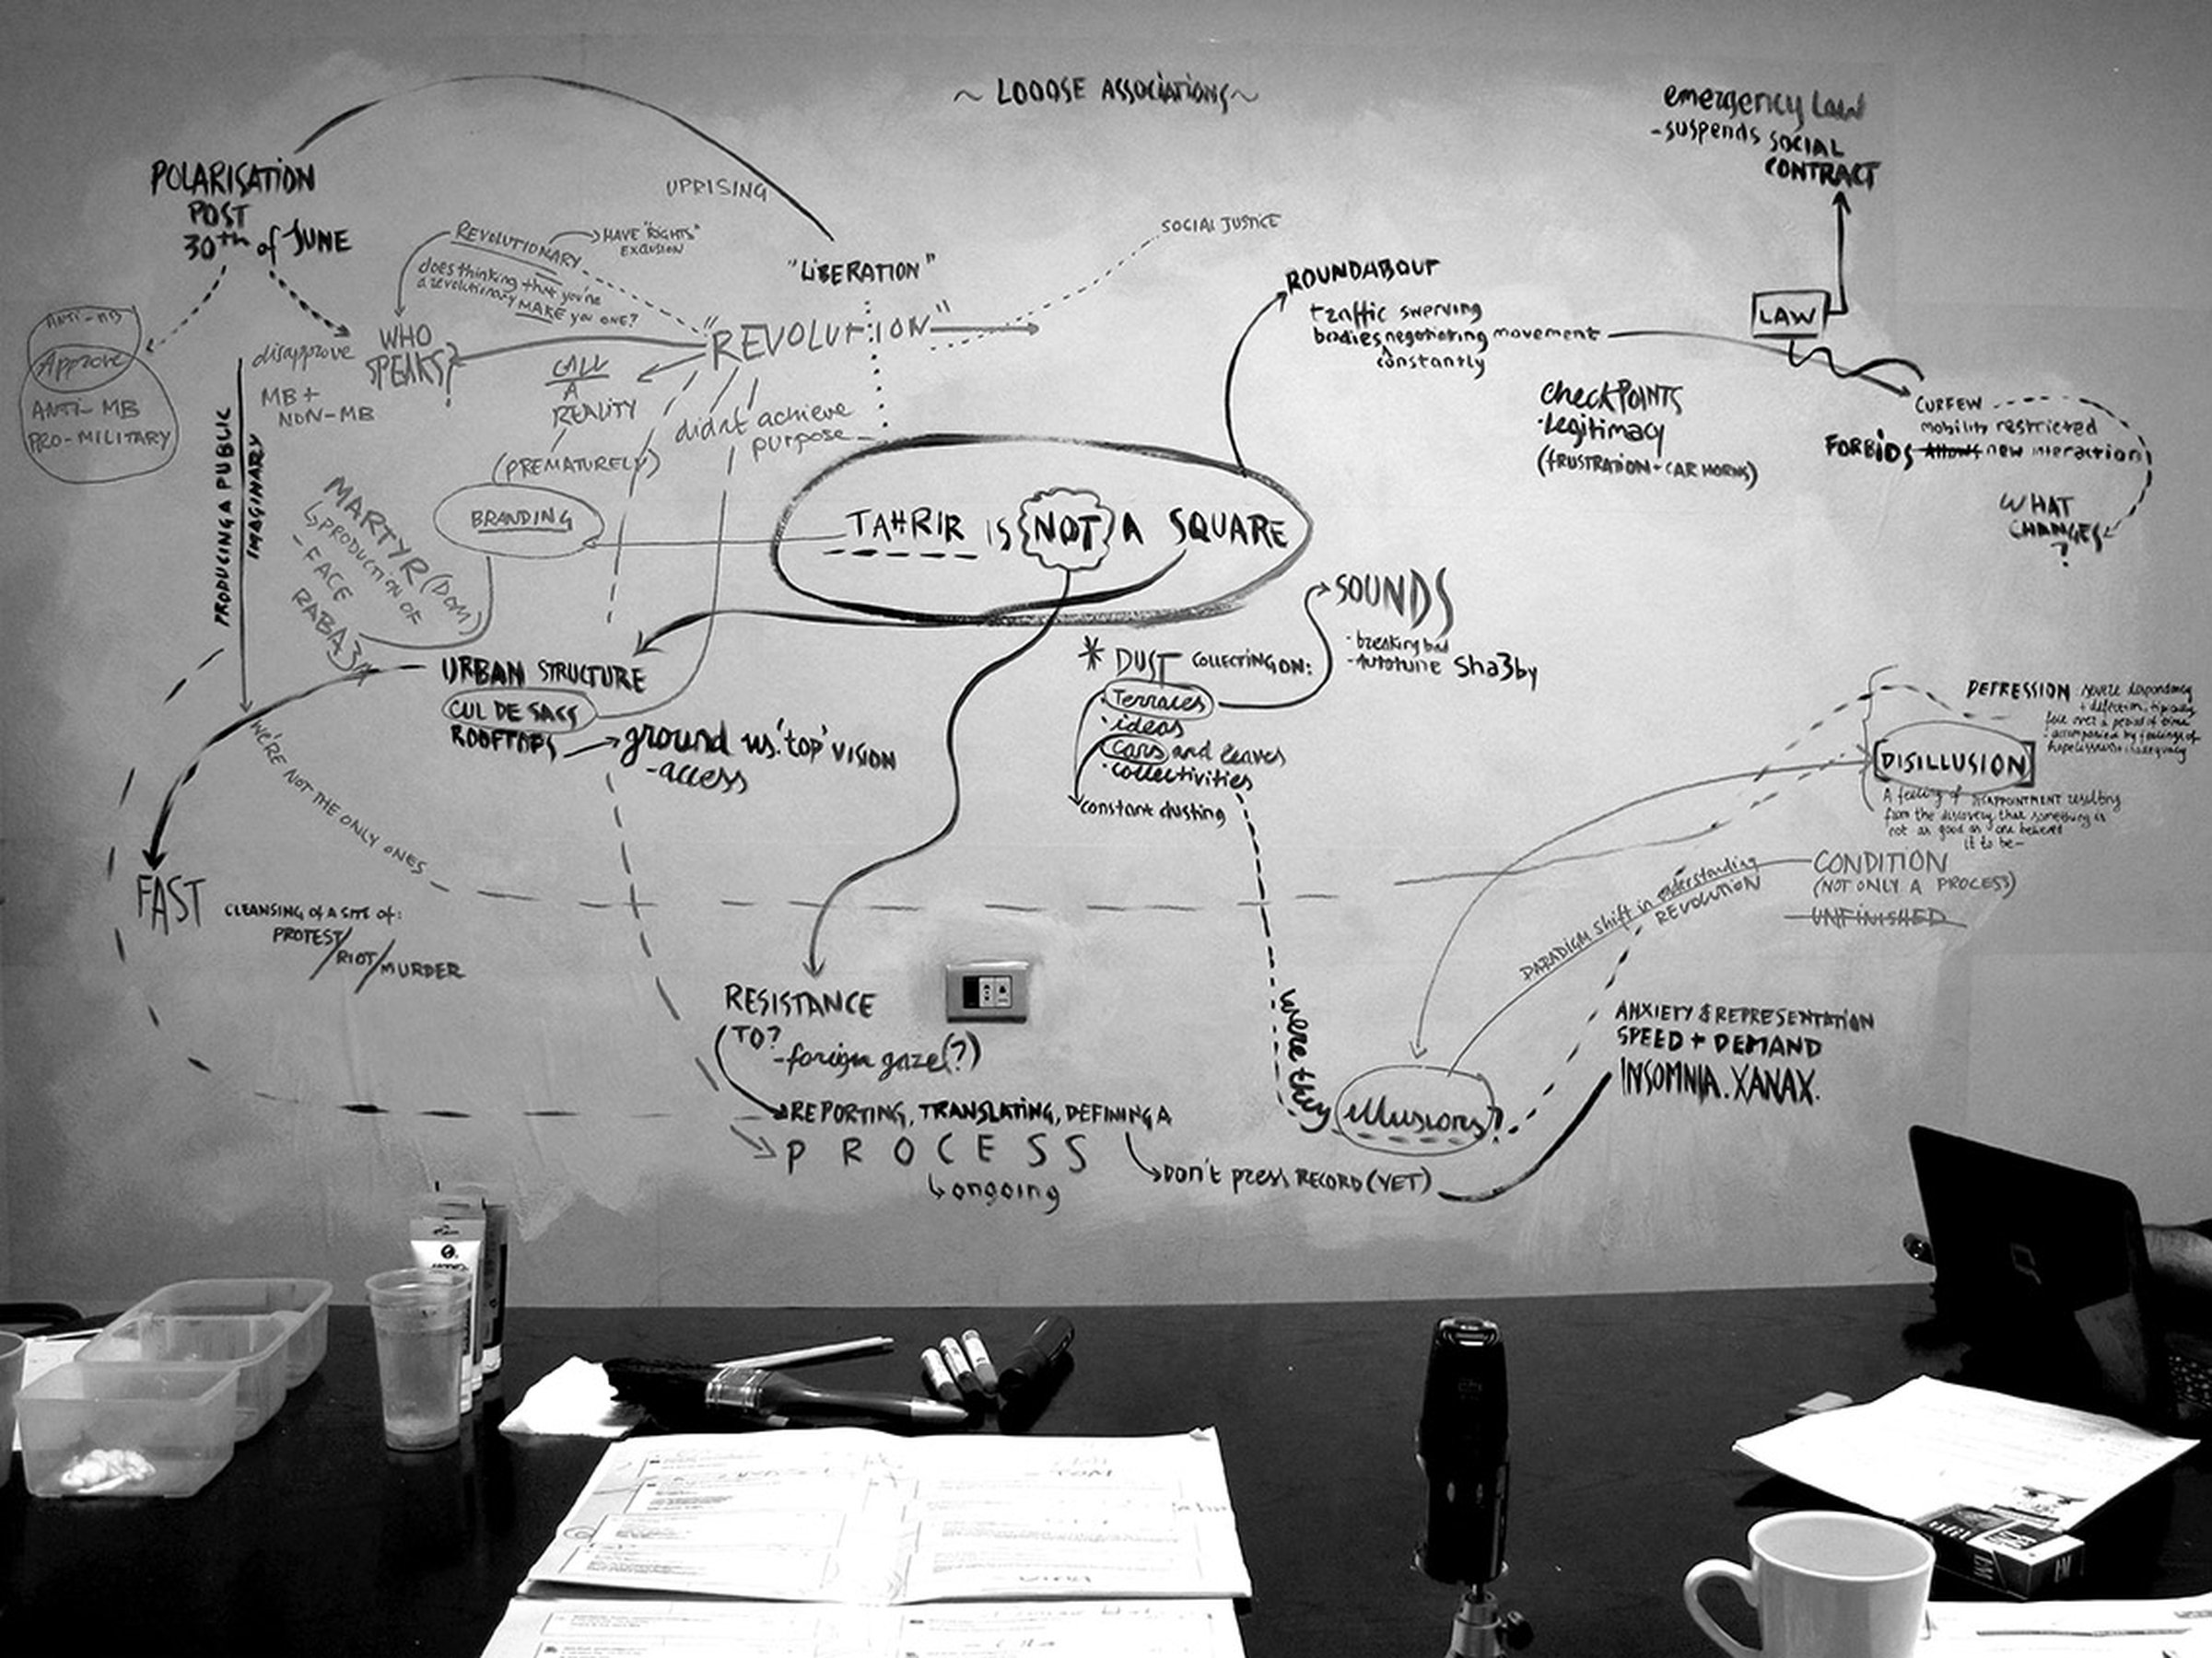 ~ LOOOSE ASSOCIATIONS ~
emergency Law
- suspends SOCIAL
CONTRACT
POLARISATION
POST
30th of JUNE
UPRISING
REVOLUTIONARY
HAVE "RIGHTS"
EXCLUSION
does thinking that you're
a revolutionary MAKE you ONE?
"LIBERATION"
SOCIAL JUSTICE
"REVOLUTION"
ROUNDABOUT
traffic swerving
bodies negotiating movement
constantly
LAW
ANTI-MB
Approve
ANTI-MB
PRO-MILITARY
disapprove
MB +
NON-MB
WHO
SPEAKS?
CALL
A
REALITY
(PREMATURELY)
didn't achieve
purpose
checkPOINTS
·Legitimacy
(FRUSTRATION - CAR HORNS)
CURFEW
mobility restricted
FORBIDS Allows new interaction
WHAT
CHANGES
?
PRODUCING A PUBLIC
IMAGINARY
MARTYR (DOM)
PRODUCTION OF
- FACE
RABA3A
BRANDING
TAHRIR IS NOT A SQUARE
SOUNDS
- breaking bad
- Autotune Sha3by
* DUST COLLECTING ON:
· Terraces
· ideas
· cars and leaves
· collectivities
constant dusting
URBAN STRUCTURE
CUL DE SACS
ROOFTOPS
ground vs. 'top' VISION
- access
WE'RE NOT THE ONLY ONES
FAST
CLEANSING OF A SITE OF:
PROTEST/
RIOT/
MURDER
DEPRESSION: severe despondency
+ dejection, typically
felt over a period of time
- accompanied by feelings of
hopelessness + inadequacy
DISILLUSION
A feeling of DISAPPOINTMENT resulting
from the discovery that something is
not as good as one believed
it to be -
CONDITION
(NOT ONLY A PROCESS)
UNFINISHED
PARADIGM shift in understanding
REVOLUTION
RESISTANCE
TO?
- foreign gaze (?)
REPORTING, TRANSLATING, DEFINING A
PROCESS
ongoing
DON'T press RECORD (YET)
were they
illusions?
ANXIETY & REPRESENTATION
SPEED + DEMAND
INSOMNIA. XANAX.